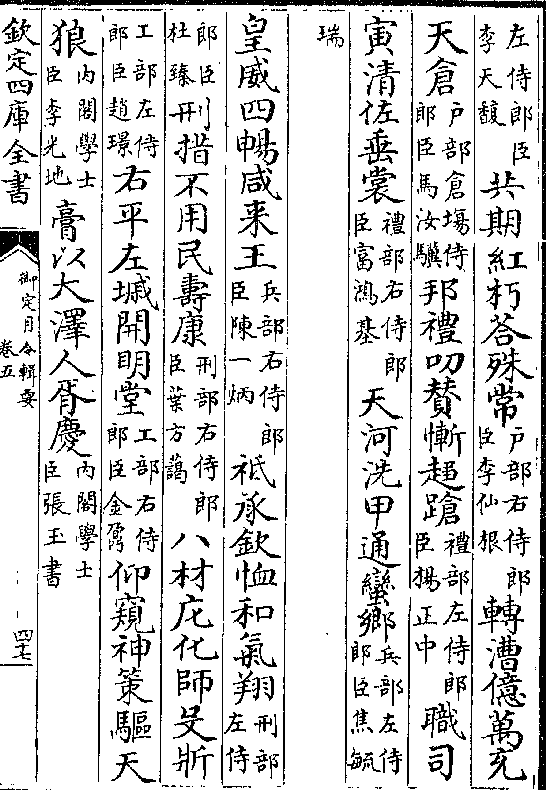 左侍郎臣李天馥共期紅朽荅殊常戸部右侍郎臣李仙根轉漕億萬充
天倉戸部倉塲侍郎臣馬汝驥邦禮叨賛慚趨蹌禮部左侍郎臣楊正中職司
寅清佐垂裳禮部右侍郎臣富鴻基天河洗甲通蠻鄉兵部左侍郎臣焦毓
瑞
皇威四暢咸来王兵部右侍郎臣陳一炳祗承欽恤和氣翔刑部左侍
郎臣杜臻刑措不用民壽康刑部右侍郎臣葉方藹八材庀化師殳斨
工部左侍郎臣趙璟右平左墄開明堂工部右侍郎臣金鼐仰窺神策驅天
狼内閣學士臣李光地膏以大澤人胥慶内閣學士臣張玉書
欽定四庫全書
御定月令輯要
卷五
四七